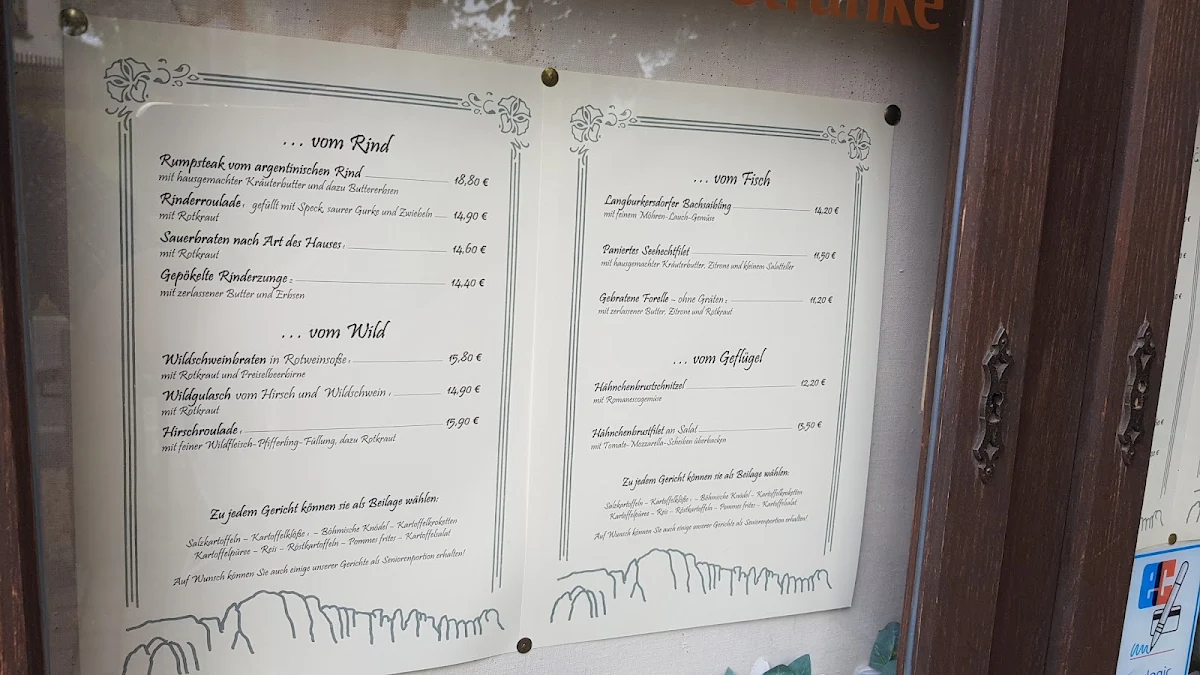 ... vom Rind
Rumpsteak vom argentinischen Rind 18,80 €
mit hausgemachter Kräuterbutter und dazu Buttererbsen
Rinderroulade, gefüllt mit Speck, saurer Gurke und Zwiebeln 14,90 €
mit Rotkraut
Sauerbraten nach Art des Hauses, 14,60 €
mit Rotkraut
Gepökelte Rinderzunge 2 14,40 €
mit zerlassener Butter und Erbsen
... vom Wild
Wildschweinbraten in Rotweinsoße, 15,80 €
mit Rotkraut und Preiselbeerbirne
Wildgulasch vom Hirsch und Wildschwein, 14,90 €
mit Rotkraut
Hirschroulade, 15,90 €
mit feiner Wildfleisch-Pfifferling-Füllung, dazu Rotkraut
Zu jedem Gericht können sie als Beilage wählen:
Salzkartoffeln – Kartoffelklöße – Böhmische Knödel – Kartoffelkroketten
Kartoffelpüree – Reis – Röstkartoffeln – Pommes frites – Kartoffelsalat
Auf Wunsch können Sie auch einige unserer Gerichte als Seniorenportion erhalten!
... vom Fisch
Langburkersdorfer Bachsaibling 14,20 €
mit feinem Möhren-Lauch-Gemüse
Paniertes Seehechtfilet 11,50 €
mit hausgemachter Kräuterbutter, Zitrone und kleinem Salatteller
Gebratene Forelle – ohne Gräten 2 11,20 €
mit zerlassener Butter, Zitrone und Rotkraut
... vom Geflügel
Hähnchenbrustschnitzel 12,20 €
mit Romanescogemüse
Hähnchenbrustfilet an Salat 13,50 €
mit Tomate-Mozzarella-Scheiben überbacken
Zu jedem Gericht können sie als Beilage wählen:
Salzkartoffeln – Kartoffelklöße – Böhmische Knödel – Kartoffelkroketten
Kartoffelpüree – Reis – Röstkartoffeln – Pommes frites – Kartoffelsalat
Auf Wunsch können Sie auch einige unserer Gerichte als Seniorenportion erhalten!
ec